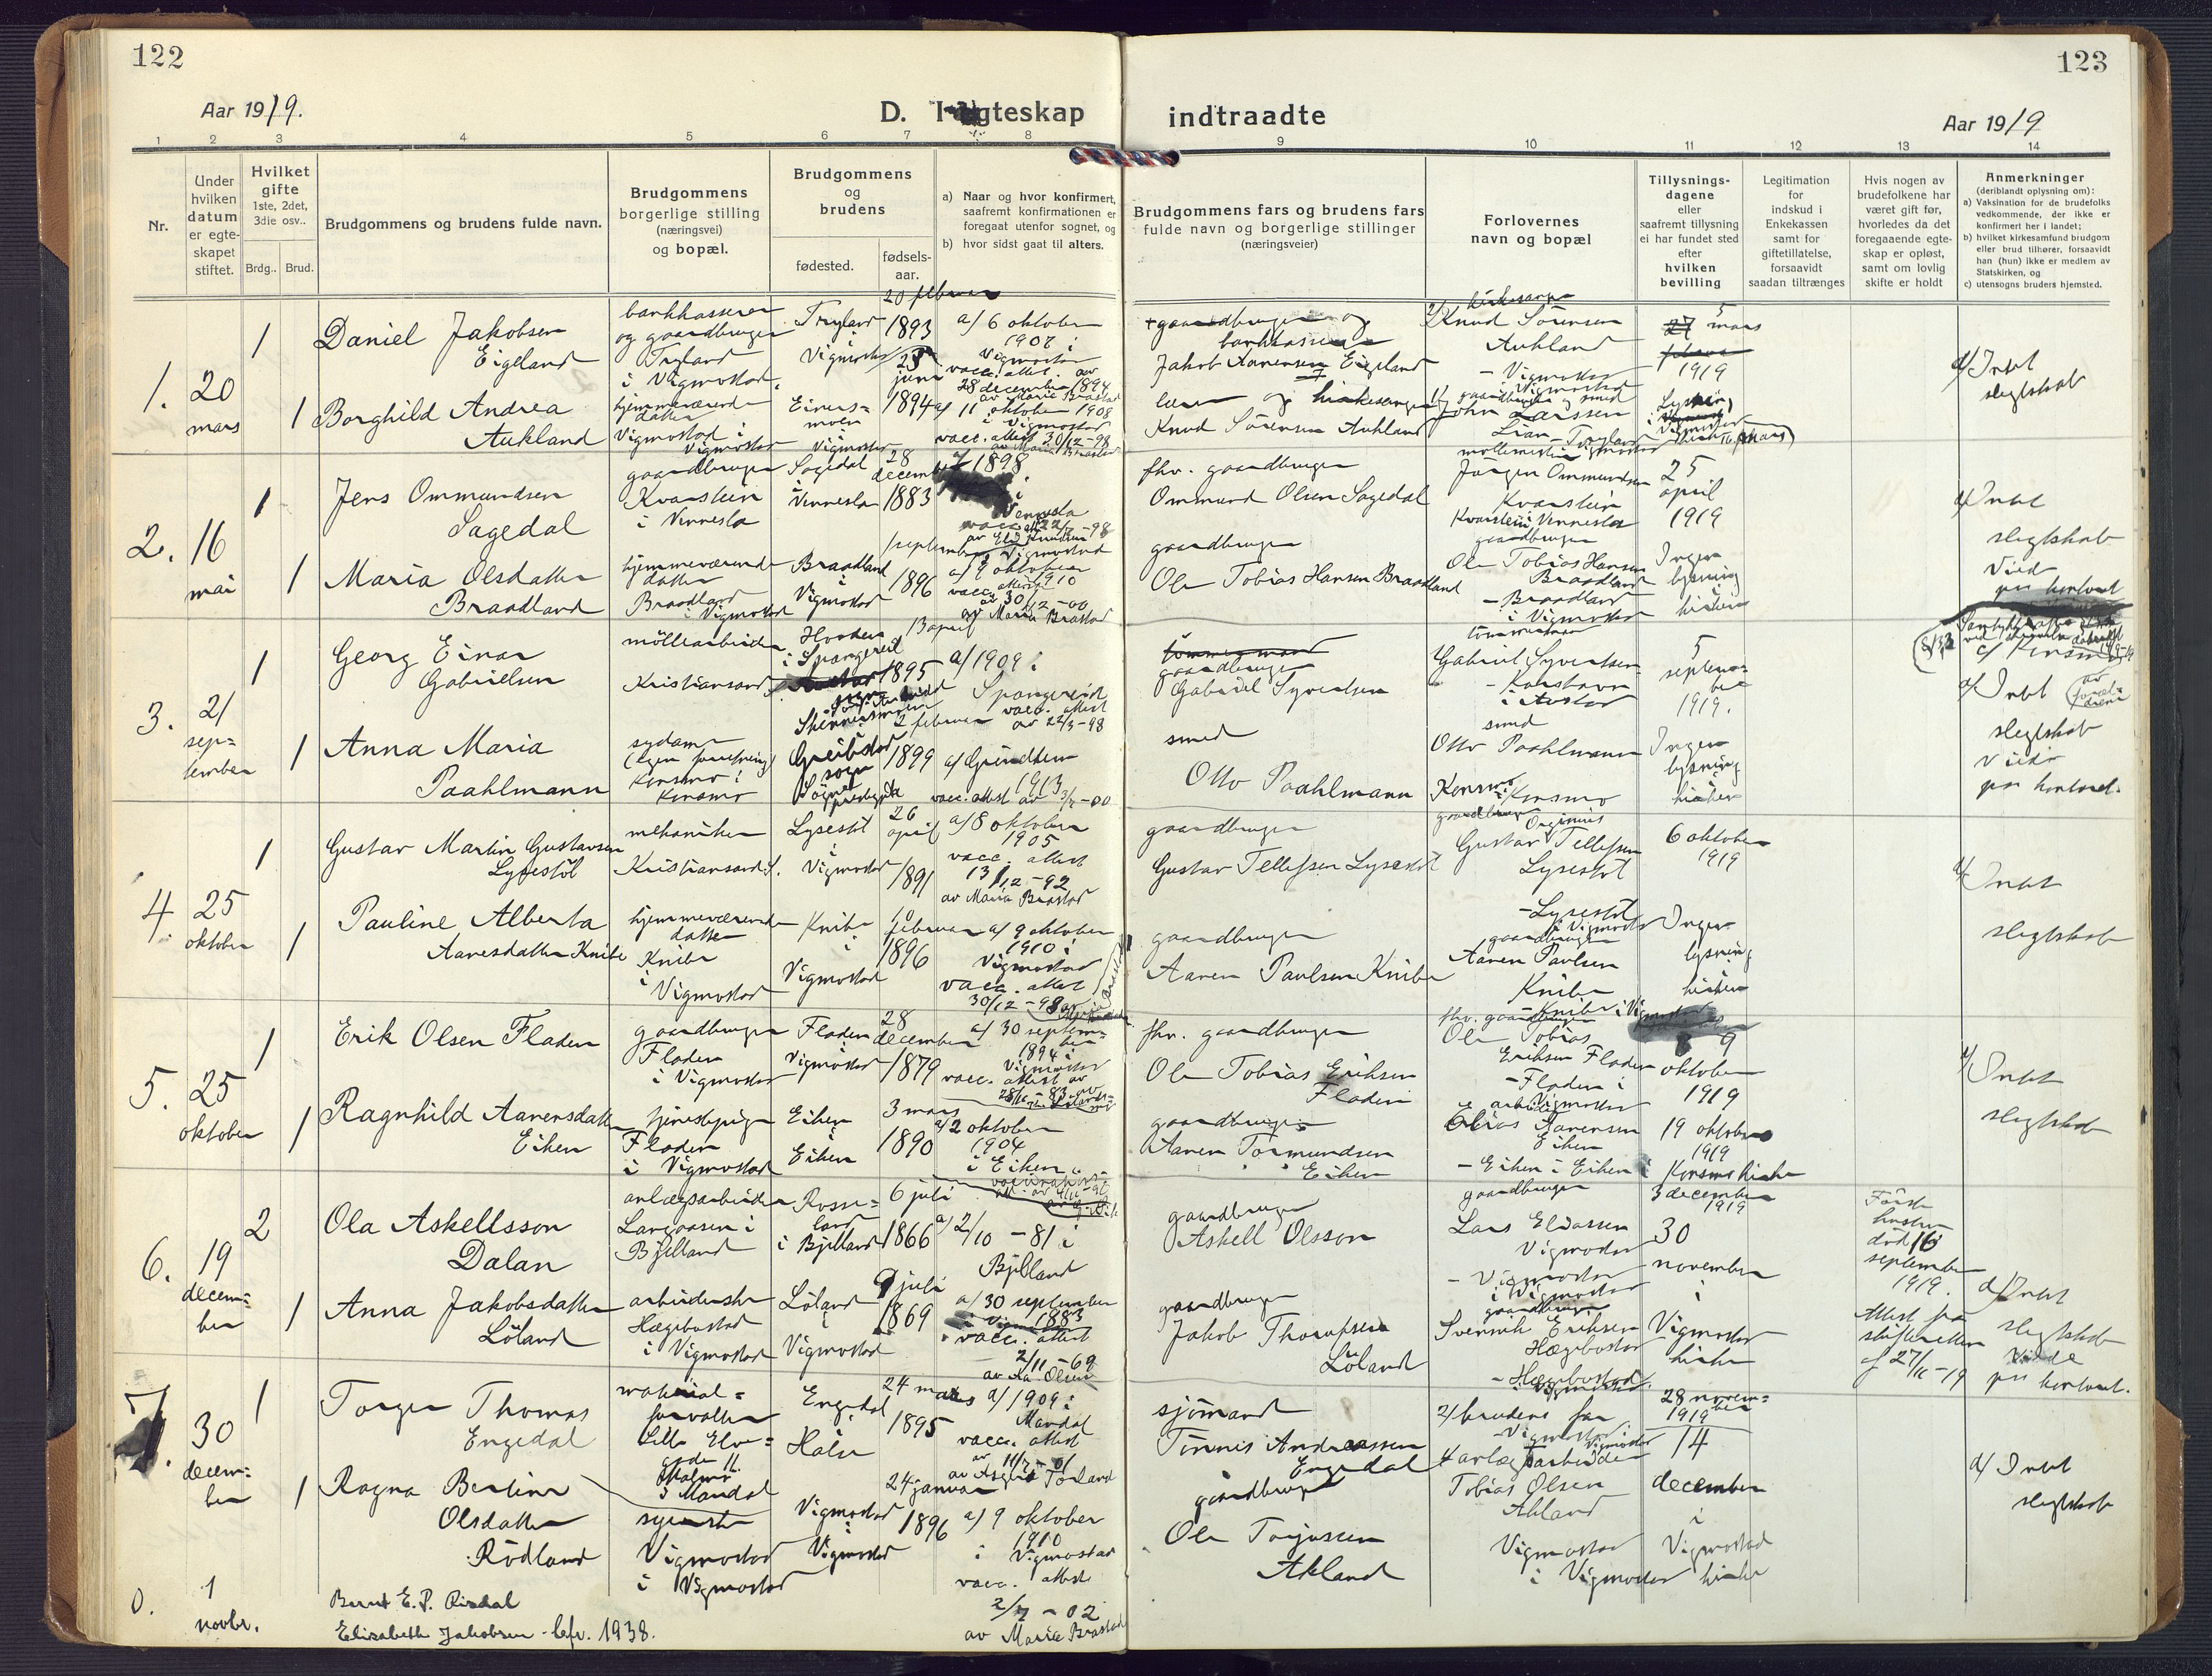 122
123
Aar 1919.
D. I egteskap
indtraadte
Aar 1919
1
2
3
4
5
6
7
8
9
10
11
12
13
14
Nr.
Under
hvilken
datum
er egte-
skapet
stiftet.
Hvilket
gifte
1ste, 2det,
3die osv..
Brdg..
Brud.
Brudgommens og brudens fulde navn.
Brudgommens
borgerlige stilling
(næringsvei)
og bopæl.
Brudgommens
og
brudens
fødested.
fødsels-
aar.
a) Naar og hvor konfirmert,
saafremt konfirmationen er
foregaat utenfor sognet, og
b) hvor sidst gaat til alters.
Brudgommens fars og brudens fars
fulde navn og borgerlige stillinger
(næringsveier)
Forlovernes
navn og bopæl
Tillysnings-
dagene
eller
saafremt tillysning
ei har fundet sted
efter
hvilken
bevilling
Legitimation
for
indskud i
Enkekassen
samt for
giftetillatelse,
forsaavidt
saadan tiltrænges
Hvis nogen av
brudefolkene har
været gift før,
hvorledes da det
foregaaende egte-
skap er opløst,
samt om lovlig
skifte er holdt
Anmerkninger
(deriblandt oplysning om):
a) Vaksination for de brudefolks
vedkommende, der ikke er
konfirmert her i landet;
b) hvilket kirkesamfund brudgom
eller brud tilhører, forsaavidt
han (hun) ikke er medlem av
Statskirken, og
c) utensogns bruders hjemsted.
1.
20
mars
1
Daniel Jakobsen
Eigeland
bankkasserer
og gaardbruger
Tryland
i Vigmostad
Tryland
i
Vigmostad
20 februar
1893
a/ 6 oktober
1907 i
Vigmostad
vacc. attest. av
28 december 1894
av Maria Brastad
gaardbruger og
bankkasserer
Jakob Aanensen Eigeland
kirkesanger
2/ Knud Sörensen
Aukland
- Vigmostad
i Vigmostad
5 mars
1919
a/ Intet
slegtskab
1
Borghild Andrea
Aukland
hjemmeværende
datter
Vigmostad i
Vigmostad
Einers-
moen
i
Vigmostad
25
juni
1894
a/ 11 oktober 1908
i Vigmostad
vacc. attest 30/12-98
av Maria Brastad
lærer og kirkesanger
Knud Sörensen Aukland
gaardbruger og smed
1/ John Larssen
Lian - Tryland
i Vigmostad
Lysning
i
Vigmostad
kirke 16. mars)
2.
16
mai
1
Jens Ommundsen
Sagedal
gaardbruger
Kvarstein
i Vennesla
Sagedal
i
Vennesla
28
december
1883
1898
i
Vennesla
vacc. att. 22/7-98
fhv. gaardbruger
Ommund Olsen Sagedal
möllemester
Jörgen Ommundsen
Kvarstein
Kvarstein i Vennesla
25
april
1919
a/ Intet
slegtskab
Viede
paa kontoret
1
Maria Olsdatter
Braadland
hjemmeværende
datter
Braadland
i Vigmostad
Braadland
i
Vigmostad
1 september
1896
i Vigmostad
a/ 9 oktober
1910
vacc. attest
av 30/12-00
av Maria Brastad
gaardbruger
Ole Tobias Hansen Braadland
gaardbruger
Ole Tobias Hansen
Braadland
- Braadland
i Vigmostad
Ingen
lysning
i
kirken
3.
21
sep-
tember
1
Georg Einar
Gabrielsen
möllearbeider
Kristiansand
Hovden
i Spangereid
13 april
1895
a/ 1909 i
Spangereid
vacc. attest
av 22/3-98
tömmermand
gaardbruger
Gabriel Syvertsen
tömmermand
Gabriel Syvertsen
- Korshavn
i Austad
5
septem-
ber
1919.
c/ Konsmo
a/ Intet
slegtskab
Viede
paa kontoret.
1
Anna Maria
Paahlmann
sydame
(egen forretning)
Konsmo i
Konsmo
Greibstad
sogn
Søgne
prestegjeld
2 februar
1899
a/ Grindheim
1913
vacc. attest av 3/7-00
smed
Otto Paahlmann
smed
Otto Paahlmann
Konsmo
i Konsmo
Ingen
lysning
i
kirken
4.
25
oktober
1
Gustav Martin Gustavsen
Lysestöl
mekaniker
Kristiansand S.
Lysestöl
i
Vigmostad
26
april
1891
a/ 8 oktober
1905
vacc. attest
13/12-92
av Maria Brastad
gaardbruger
Gustav Tellefsen Lysestöl
gaardbruger
Gustav Tellefsen
Lysestöl
- Lysestöl
i Vigmostad
6 oktober
1919
a/ Intet
slegtskab
1
Pauline Alberta
Aanesdatter Knibe
hjemmeværende
datter
Knibe
i
Vigmostad
Knibe
i
Vigmostad
10
februar
1896
a/ 9 oktober
1910 i
Vigmostad
vacc. attest
30/12-98
gaardbruger
Aanen Paulsen Knibe
gaardbruger
Aanen Paulsen
Knibe
- Knibe i Vigmostad
Ingen
lysning
i
kirken
5.
25
oktober
1
Erik Olsen Fladen
gaardbruger
Fladen
i Vigmostad
Fladen
i
Vigmostad
28
december
1879
a/ 30 septem-
ber
1894 i
Vigmostad
vacc. attest av
fhv. gaardbruger
Ole Tobias Eriksen
Fladen
fhv. gaardbruger
Ole Tobias
Eriksen Fladen
- Fladen i
Vigmostad
9
oktober
1919
a/ Intet
slegtskab
1
Ragnhild Aanensdatter
Eiken
tjenestepige
Fladen
i Vigmostad
Eiken
i
Eiken
3 mars
1890
a/ 2 oktober
1904
i Eiken
gaardbruger
Aanen Tormundsen
Eiken
arbeider
Elias Aanensen
Eiken
- Eiken i Eiken
19 oktober
1919
i Konsmo kirke
6.
19
decem-
ber
2
Ola Askellsson
Dalan
anlægsarbeider
Langaasen i
Bjelland
Rosse-
land
i Bjelland
6 juli
1866
a/ 2/10 - 81 i
Bjelland
gaardbruger
Askell Olsson
gaardbruger
Lars Eliassen
Vigmostad
- Vigmostad
i Vigmostad
3 december
1919
30
november
i
Förste
hustru
död 16
september
1919.
a/ Intet
slegtskab
Viede
paa kontoret.
1
Anna Jakobsdatter
Löland
arbeiderske
Hægebostad
i Vigmostad
Löland
i
Vigmostad
9 juli
1869
a/ 30 september
1883
i Vigmostad
vacc. attest
2/11-69
av Aa. Olsen
gaardbruger
Jakob Thorufsen
Löland
gaardbruger
Svennik Eriksen
Hægebostad
- Hægebostad
i Vigmostad
Vigmostad
kirke
Attest fra
skifteretten
af 27/11-19
7.
30
decem-
ber
1
Torger Thomas
Engedal
material-
forvalter
Lille Elve-
gaden 11.
Malmö
i Mandal
Engedal
i
Halse
24 mars
1895
a/ 1909 i
Mandal
vacc. attest
av 11/7-01
av Asgeir Torland
sjömand
Tönnis Andreassen
Engedal
2/ brudens far
- Vigmostad i
Vigmostad
28 novem-
ber
1919
14
december
i
Vigmostad
kirke
a/ Intet
slegtskab
1
Ragna Bertine
Olsdatter
Rödland
syerske
Vigmostad
i Vigmostad
Vigmostad
i
Vigmostad
24 januar
1896
a/ 9 oktober
1910
i Vigmostad
vacc. attest
2/7-02
av Maria Brastad
gaardbruger
Ole Torjussen
Akland
anlægsarbeider
Tobias Olsen
Akland
Vigmostad
i Vigmostad
0.
1
novbr.
Bernt E. P. Risdal
Elisabeth Jakobsen - bfr. 1938.